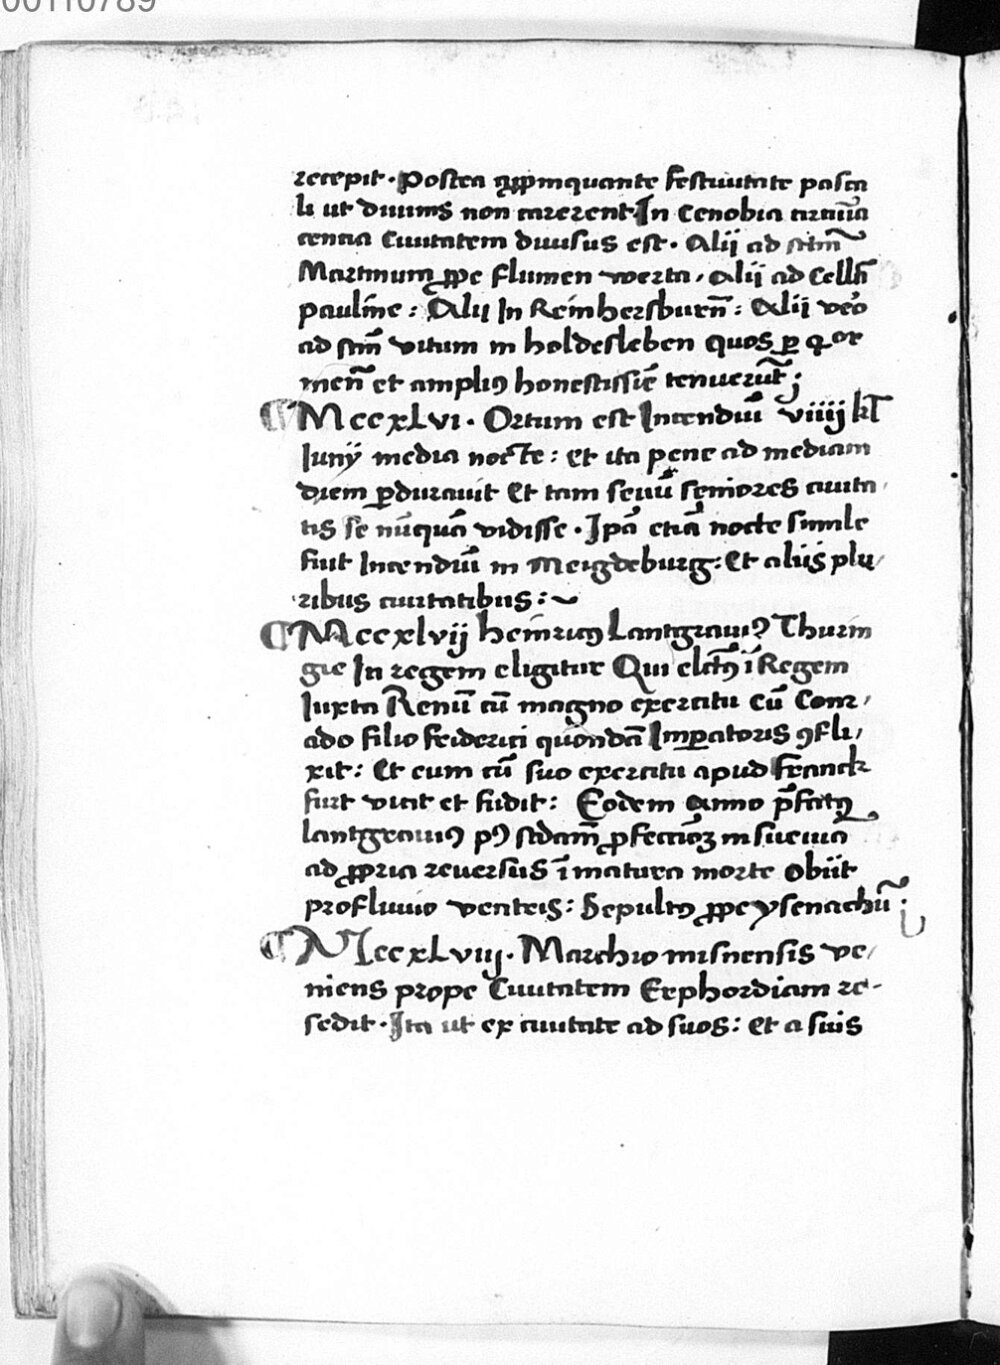 00110789
recepit · Postea appropinquante festiuitate pasca
li ut diuinis non carerent In Cenobia circūia
centia Ciuitatem diuisus est · Alij ad sctm̄
Martinum ꝓpe flumen werra, Alij ad Cellā
pauline : Alij In Reinhersburn̄ : Alij vēo
ad sctm̄ vitum in holdesleben quos ꝑ qͣor
men̄ et ampliꝯ honestissīe tenuerūt ;
¶ MccxLvi · Ortum est Incendiū viiij kl̄
Iunÿ media nocte : et ita pene ad mediam
diem ꝑdurauit Et tam seuū seniores ciuita,
tis se nūquā vidisse · Ipā etiā nocte simile
fuit Incendiū in Meigdeburg : Et alijs plu,
ribus ciuitatibus : ~
¶ Mccxlvij heinricꝯ Lantgrauiꝯ Thurin
gie In regem eligitur Qui elctꝯ ī Regem
Iuxta Renū cū magno exercitu cū Conr,
ado filio friderici quondā Imꝑatoris ꝯfli,
xit : Et eum cū suo exercitu apud franck
furt vicit et fudit : Eodem anno p̄fatꝯ
lantgrauiꝯ pꝯ scdam̄ ꝓfectiōꝫ in sueuia
ad ꝓpria reuersus īmatura morte obiit
profluuio ventris : Sepultꝯ ꝓpe ysenachū ;
¶ MccxLviij · Marchio misnensis ve,
niens prope Ciuitatem Erphordiam re-
sedit · Ita ut ex ciuitate ad suos : et a suis